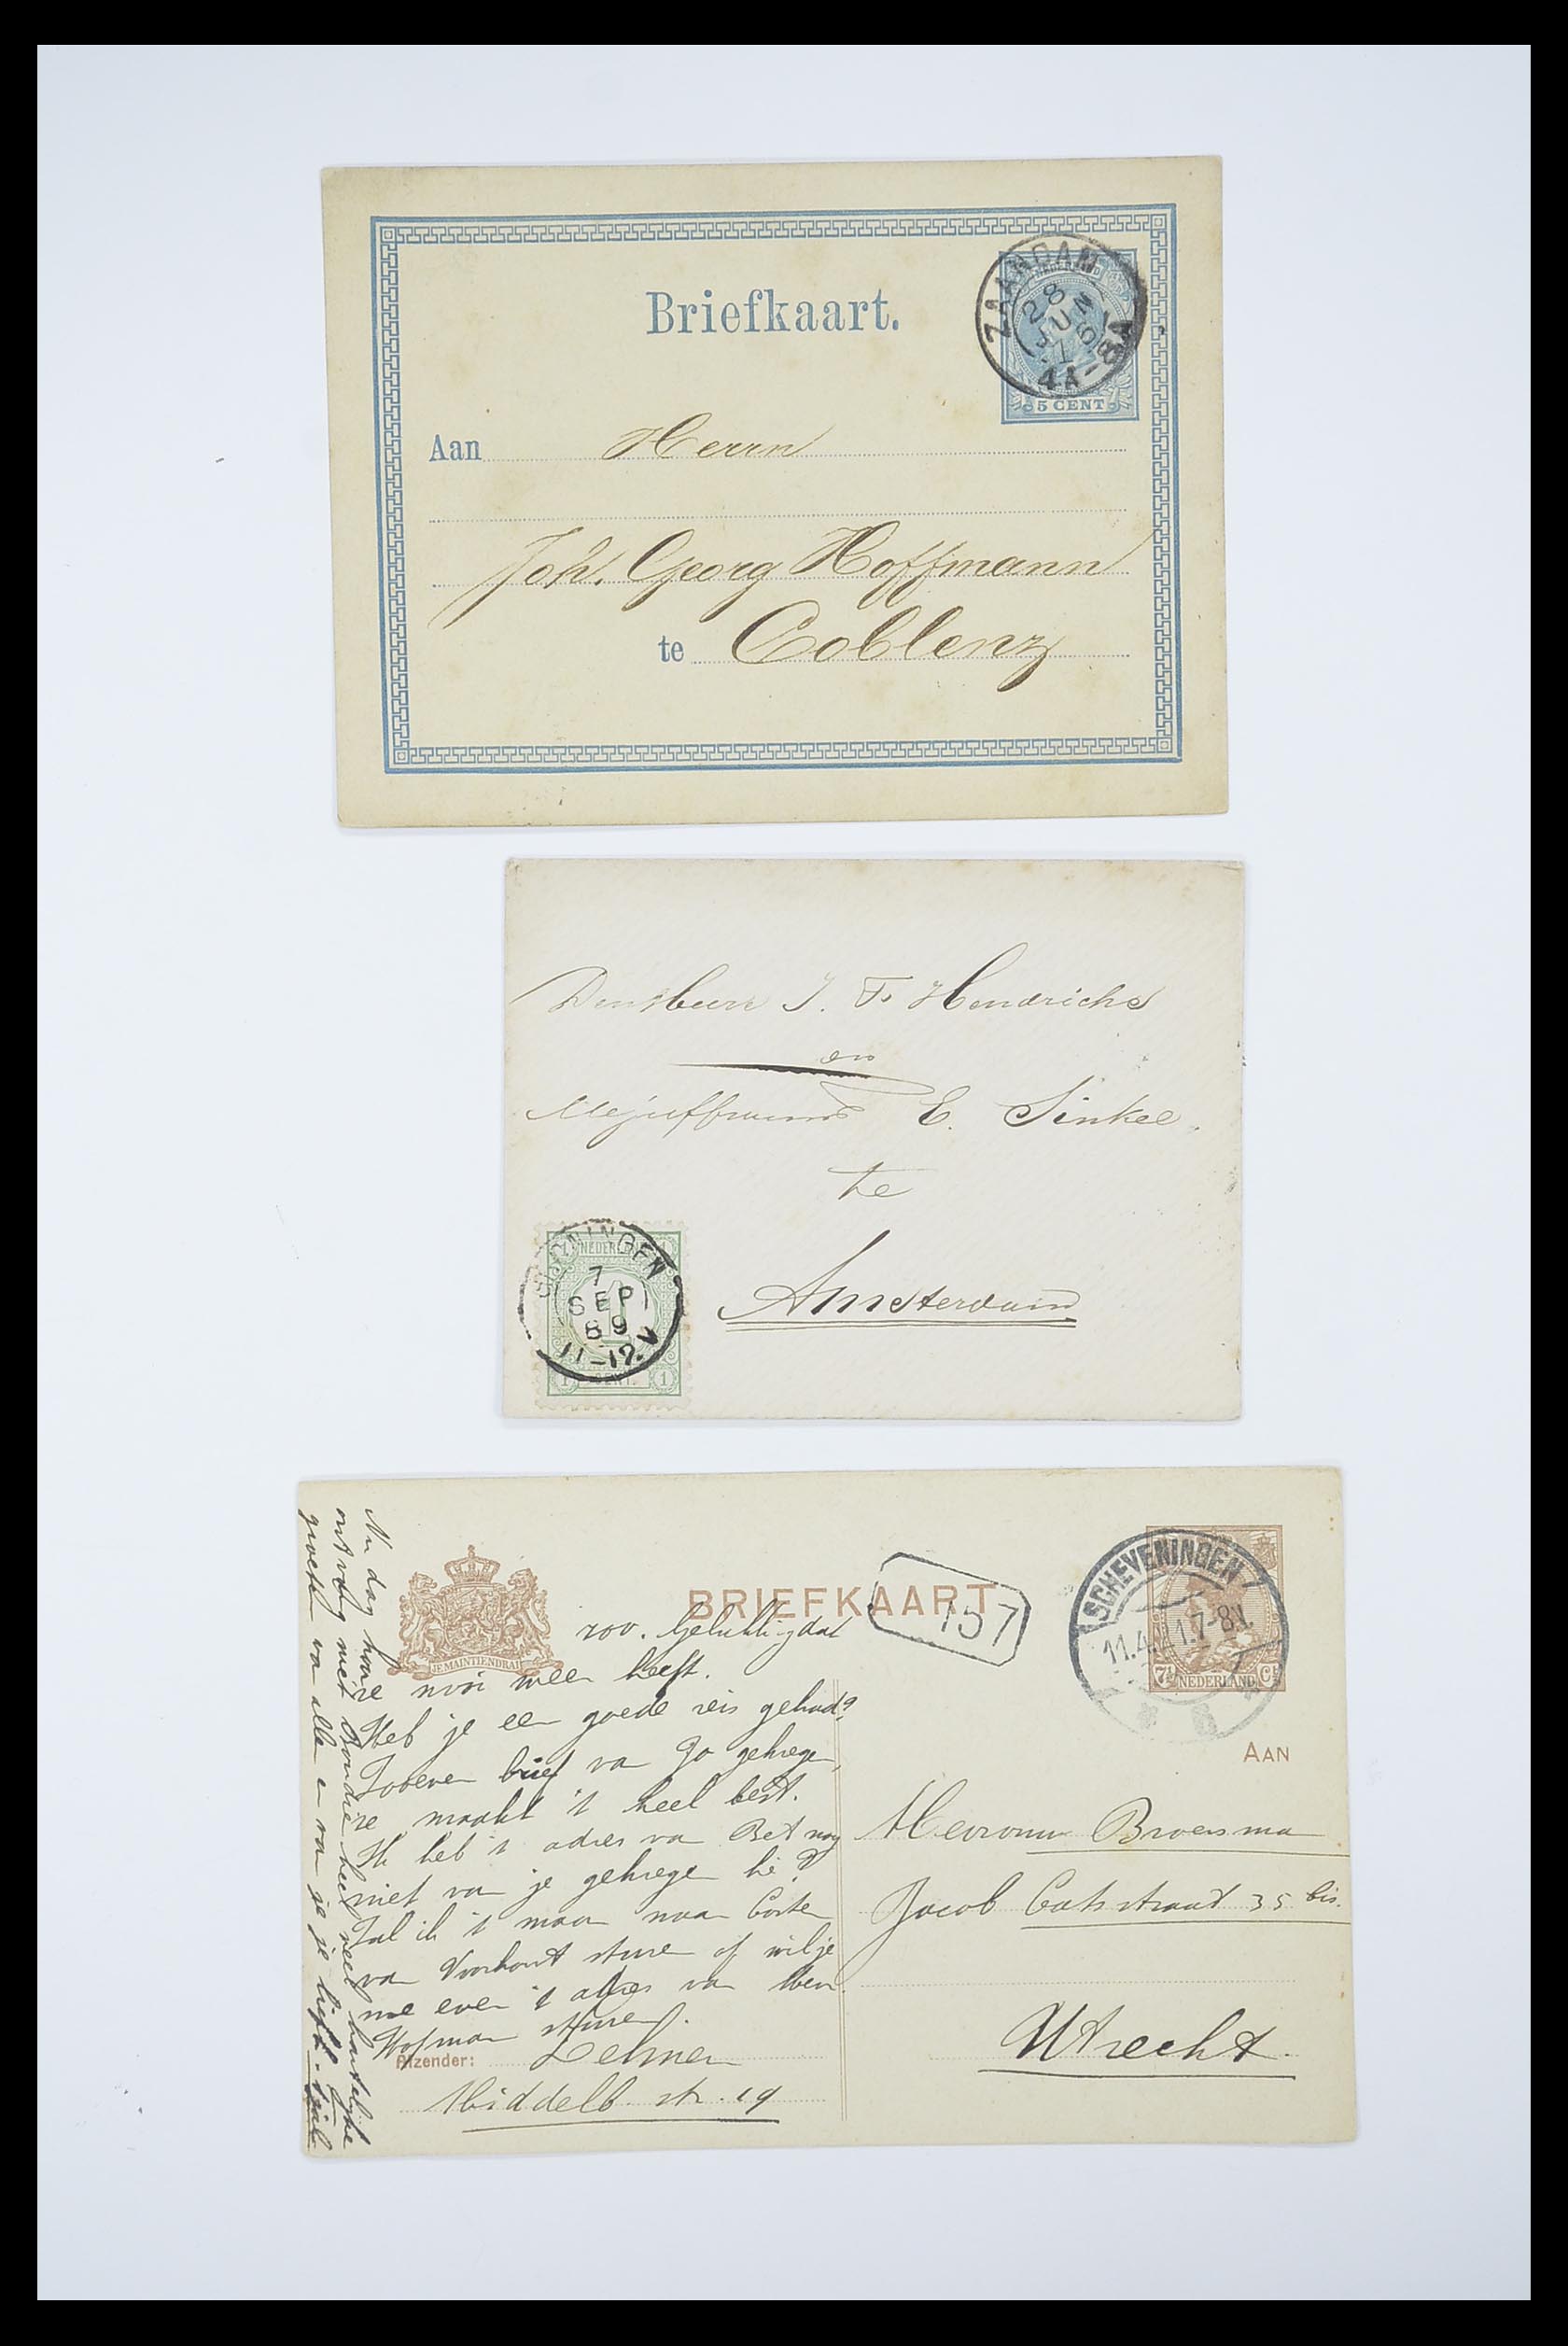 Briefkaart.
ZAANDAM
28
JUN
4A-8A
NEDERLAND
5 CENT
Aan Herrn
Joh. Georg Hoffmann
te Coblenz
J. F. Hendrichs
en
Mejuffrouw E. Sinkel.
te
Amsterdam
GRONINGEN
7
SEP
89
11-12.V
NEDERLAND
1 CENT. 1
BRIEFKAART
157
JE MAINTIENDRAI
SCHEVENINGEN
11.4.21.7-8V
7½ NEDERLAND Ct
zoo. Gelukkig dat
ze meer heeft.
Heb je een goede reis gehad?
Zooeven brief van Jo gekregen,
ze maakt 't heel best.
Ik heb 't adres van Bet nog
niet van je gekregen hè?
Zal ik 't maar naar
van Voorhout sturen of wil je
me even 't adres van
Hofman sturen.
Afzender:
Middelb. str. 19
Nu dag hoor
ontvang met heel veel hartelijke
groeten van allen en van je je liefh.
AAN
Mevrouw Broersma
Jacob Catsstraat 35 bis.
Utrecht.